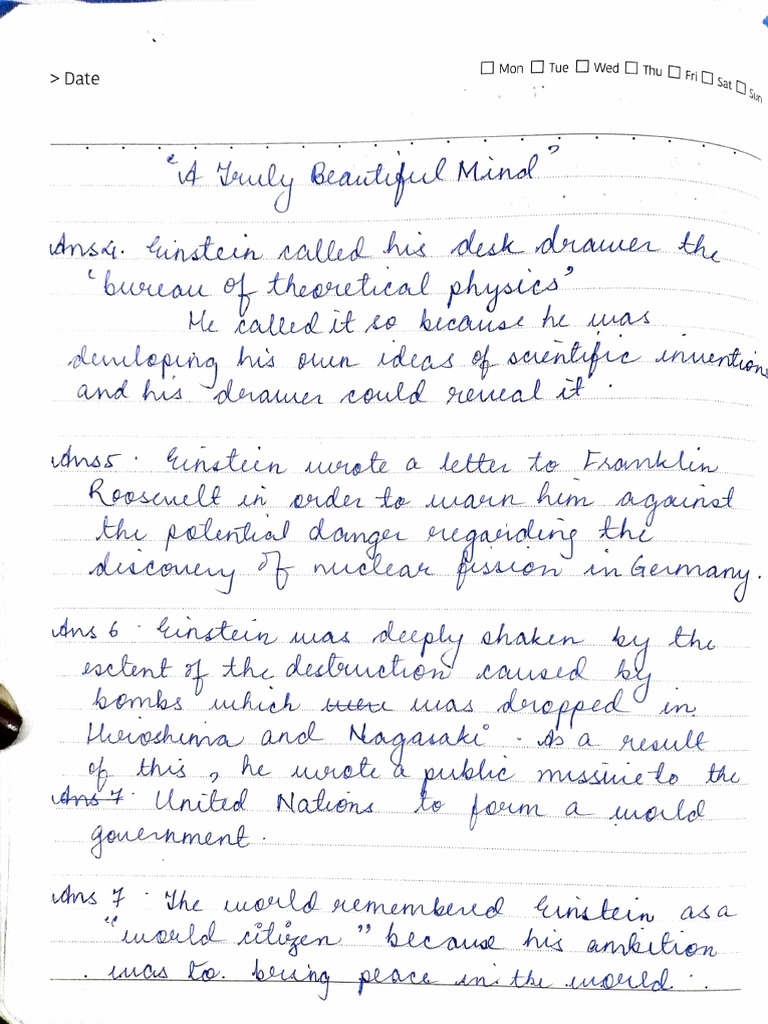 > Date
☐ Mon ☐ Tue ☐ Wed ☐ Thu ☐ Fri ☐ Sat ☐ Sun
"A Truly Beautiful Mind"
Ans 4. Einstein called his desk drawer the
"bureau of theoretical physics"
He called it so because he was
developing his own ideas of scientific inventions
and his drawer could reveal it.
Ans 5. Einstein wrote a letter to Franklin
Roosevelt in order to warn him against
the potential danger regarding the
discovery of nuclear fission in Germany.
Ans 6. Einstein was deeply shaken by the
extent of the destruction caused by
bombs which were was dropped in
Hiroshima and Nagasaki. As a result
of this, he wrote a public missive to the
Ans 7. United Nations to form a world
government.
Ans 7. The world remembered Einstein as a
"world citizen" because his ambition
was to bring peace in the world.